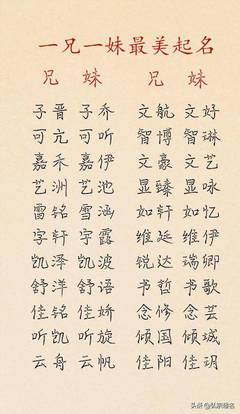 一兄一妹最美起名
兄 妹 兄 妹
子晋 子乔 文航 文好
可亢 可听 智博 智琳
嘉禾 嘉伊 文豪 文艺
艺洲 艺池 显臻 显咏
雷铭 雪涵 如轩 如忆
宇轩 宇露 维延 维伊
凯泽 凯波 锐达 瑞卿
舒洋 舒语 书哲 书歌
佳铭 佳娇 念修 念芸
听凯 听旋 倾国 倾城
云舟 云帆 佳阳 佳玥
头条 @弘宗缘名